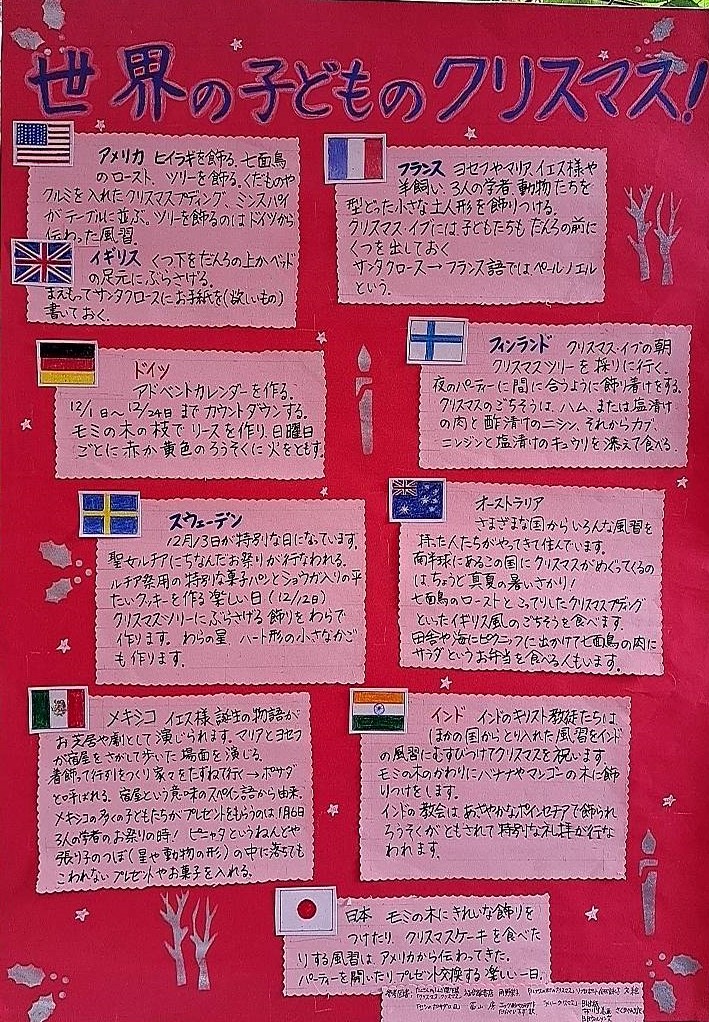 世界の子どものクリスマス!
アメリカ ヒイラギを飾る。七面鳥
のロースト、ツリーを飾る。くだものや
クルミを入れたクリスマスプディング、ミンスパイ
がテーブルに並ぶ。ツリーを飾るのはドイツから
伝わった風習。
イギリス くつ下をだんろの上かベッド
の足元にぶらさげる。
まえもってサンタクロースにお手紙を(欲しいもの)
書いておく。
フランス ヨセフやマリア、イエス様や
羊飼い、3人の学者、動物たちを
型どった小さな土人形を飾りつける。
クリスマス・イブには子どもたちも だんろの前に
くつを出しておく
サンタクロース→フランス語ではペールノエル
という。
ドイツ
アドベントカレンダーを作る。
12/1日〜12/24日までカウントダウンする。
モミの木の枝でリースを作り、日曜日
ごとに赤か黄色のろうそくに火をともす。
フィンランド クリスマス・イブの朝
クリスマスツリーを採りに行く。
夜のパーティーに間に合うように飾り着けをする。
クリスマスのごちそうは、ハム、または塩漬け
の肉と酢漬けのニシン、それからカブ、
ニンジンと塩漬けのキュウリを添えて食べる。
スウェーデン
12月13日が特別な日になっています。
聖女ルチアにちなんだお祭りが行なわれる。
ルチア祭用の特別な菓子パンとショウガ入りの平
たいクッキーを作る楽しい日(12/12日)
クリスマスツリーにぶらさげる飾りをわらで
作ります。わらの星、ハート形の小さなかご
も作ります。
オーストラリア
さまざまな国からいろんな風習を
持った人たちがやってきて住んでいます。
南半球にあるこの国にクリスマスがめぐってくるの
はちょうど真夏の暑いさかり!
七面鳥のローストとこってりしたクリスマスプディング
といったイギリス風のごちそうを食べます。
田舎や海にピクニックに出かけて七面鳥の肉に
サラダというお弁当を食べる人もいます。
メキシコ イエス様誕生の物語が
お芝居や劇として演じられます。マリアとヨセフ
が宿屋をさがして歩いた場面を演じる。
着飾って行列をつくり家々をたずねて行く→ポサダ
と呼ばれる。宿屋という意味のスペイン語から由来。
メキシコの多くの子どもたちがプレゼントをもらうのは1月6日
3人の学者のお祭りの時! ピニャタというねんどや
張り子のつぼ(星や動物の形)の中に落ちても
こわれないプレゼントやお菓子を入れる。
インド インドのキリスト教徒たちは、
ほかの国からとり入れた風習をインド
の風習にむすびつけてクリスマスを祝います。
モミの木のかわりにバナナやマンゴーの木に飾
りつけをします。
インドの教会はあざやかなポインセチアで飾られ
ろうそくがともされて特別な礼拝が行な
われます。
日本 モミの木にきれいな飾りを
つけたり、クリスマスケーキを食べた
りする風習は、アメリカから伝わってきた。
パーティーを開いたりプレゼント交換する楽しい一日。